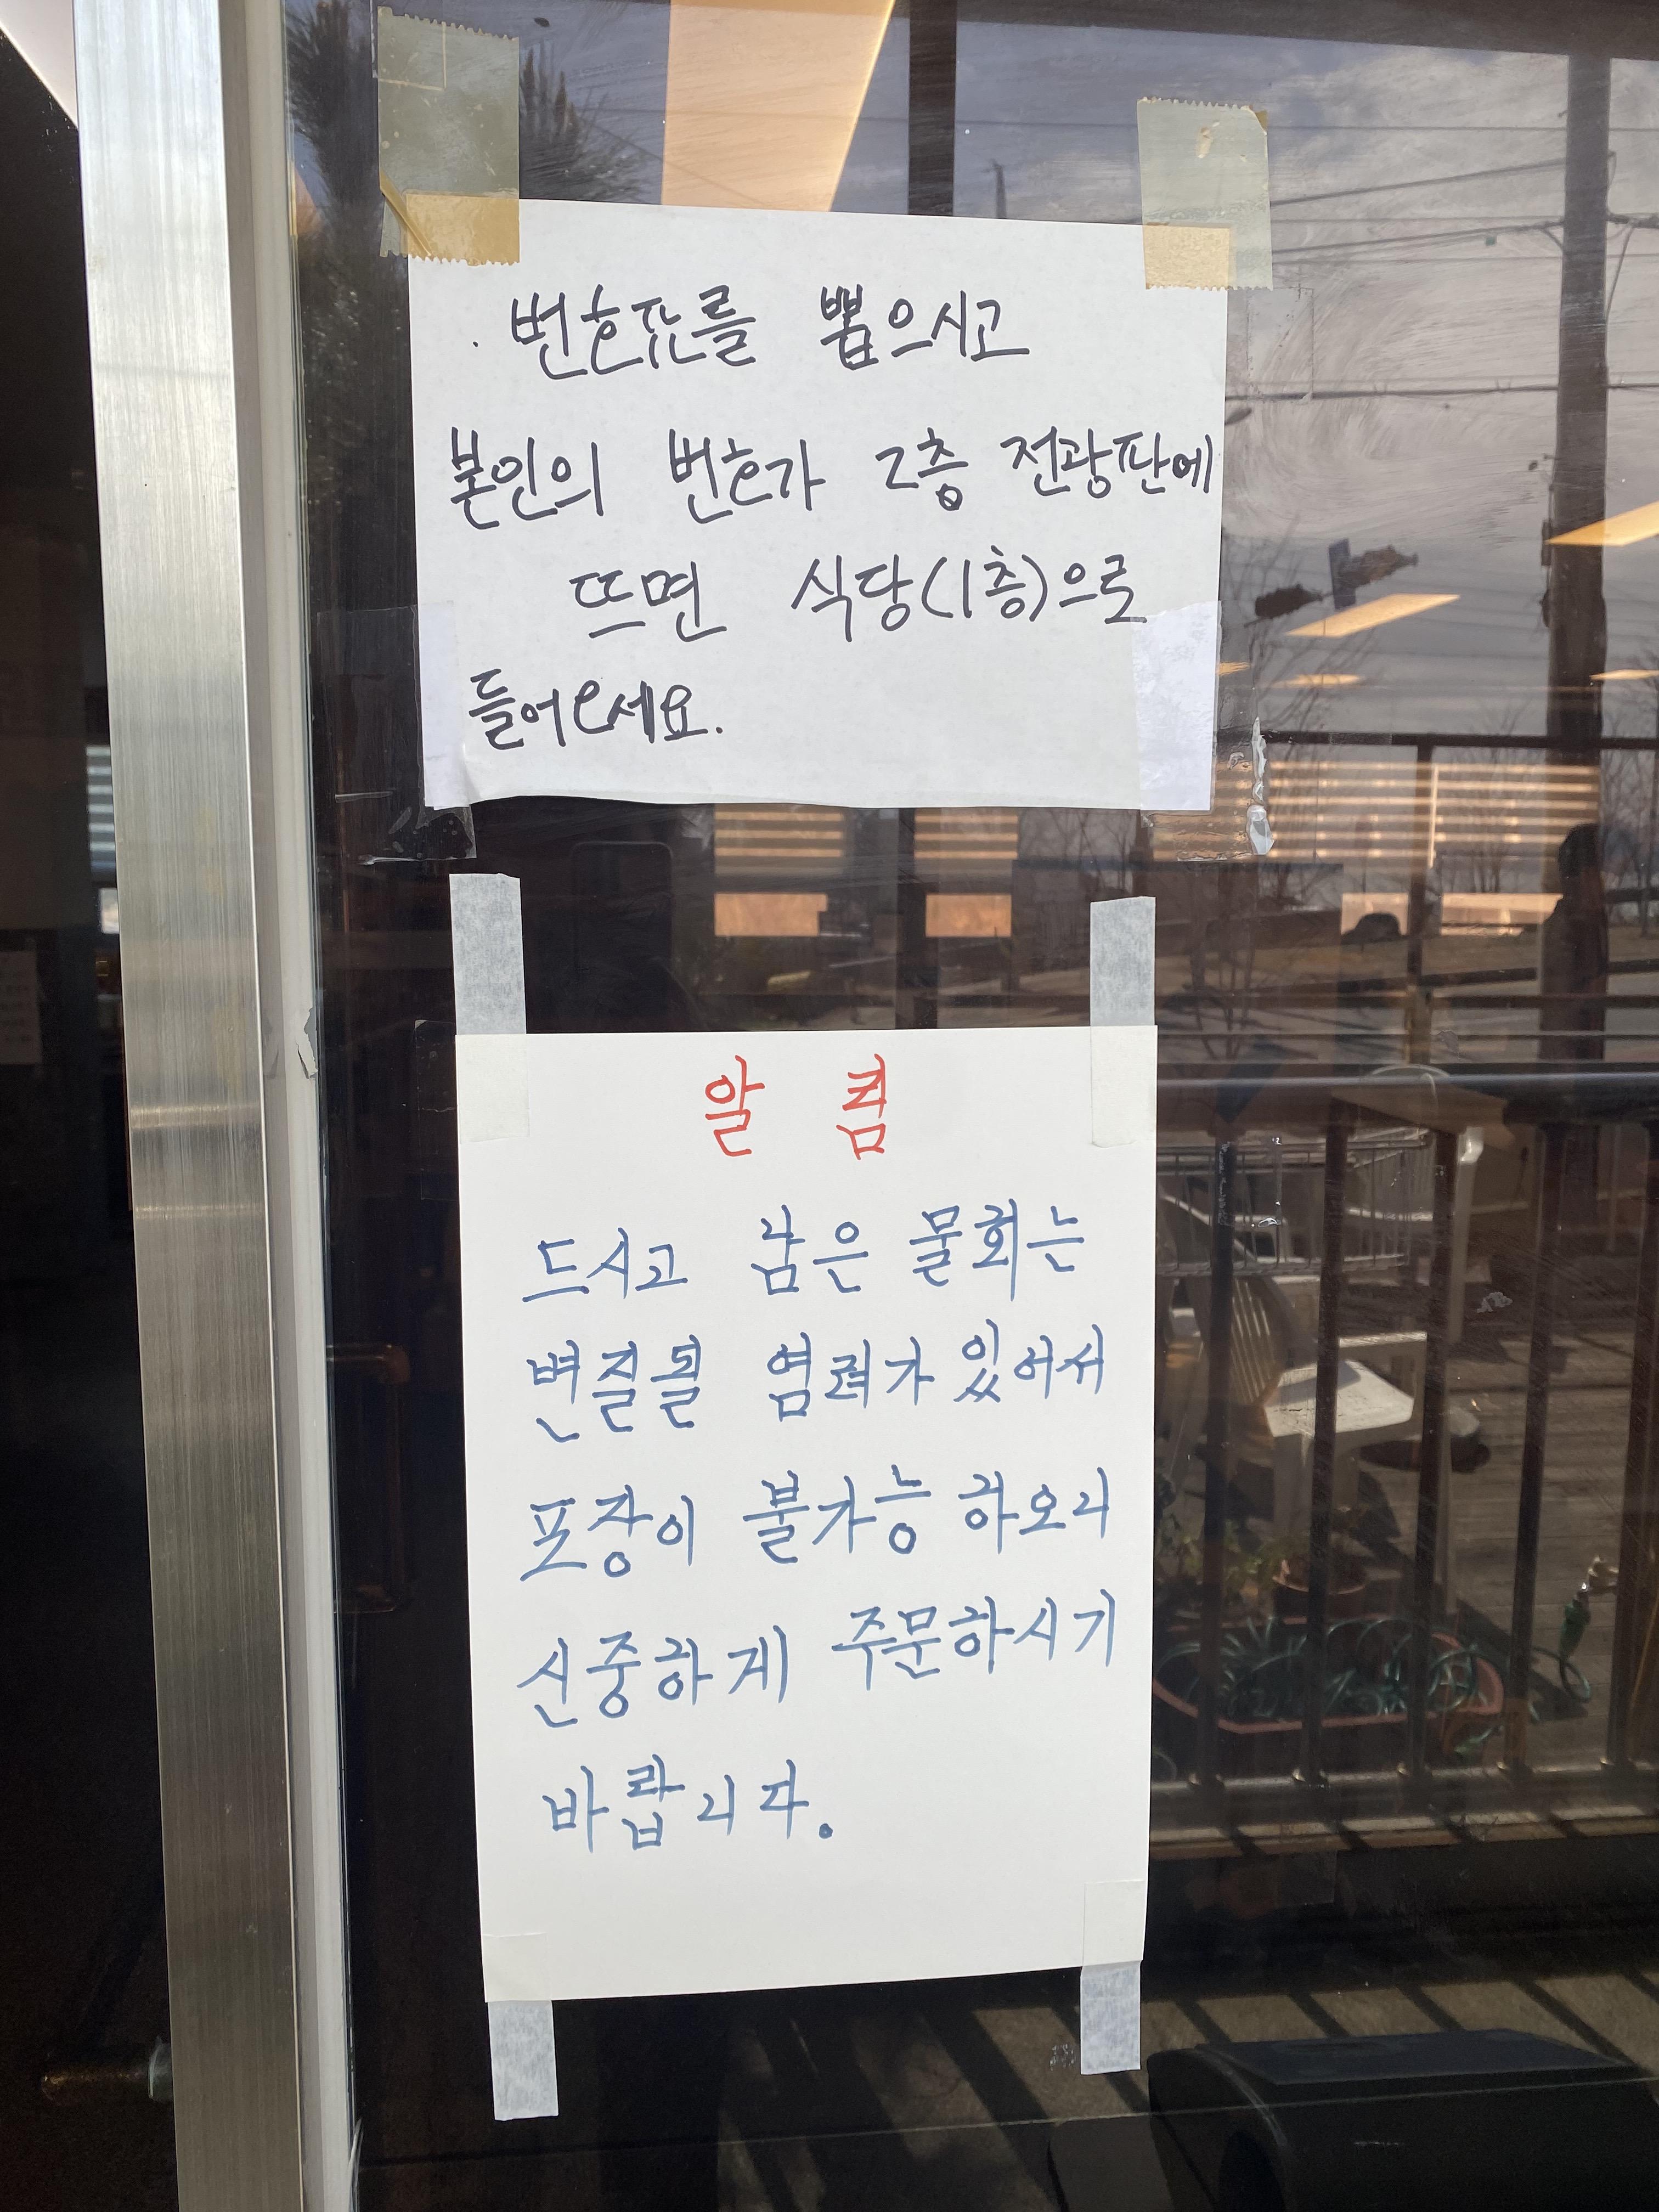 . 번호판를 뽑으시고
본인의 번호가 2층 전광판에
뜨면 식당(1층)으로
들어오세요.
알 림
드시고 남은 물회는
변질될 염려가 있어서
포장이 불가능 하오니
신중하게 주문하시기
바랍니다.